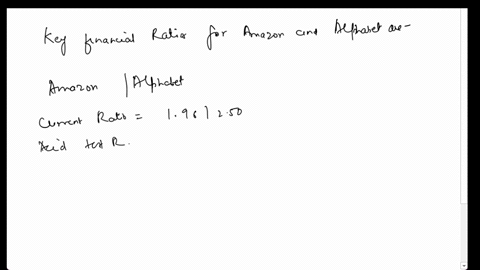 Key financial Ratios for Amazon and Alphabet are-
Amazon | Alphabet
Current Ratio = 1.96 | 2.50
Acid test R.